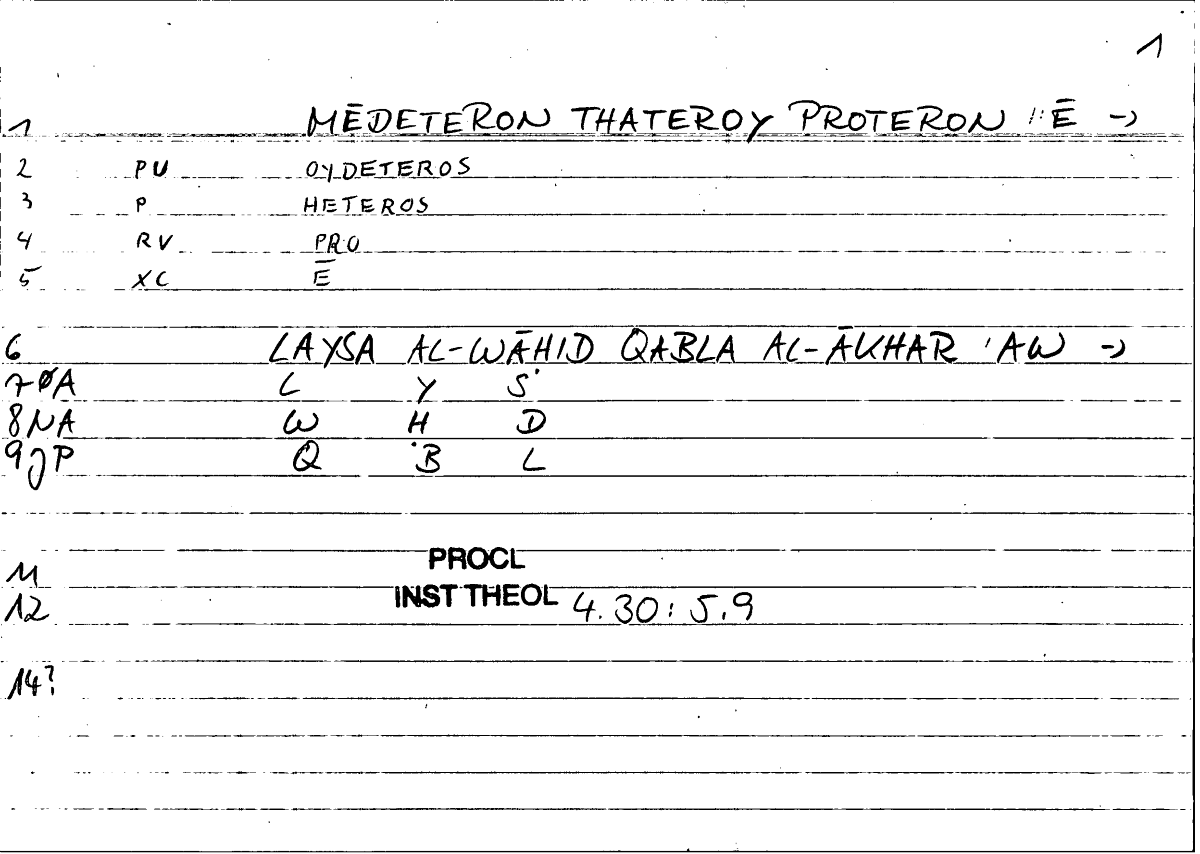 1
1 MĒDETERON THATEROY PROTERON "Ē →
2 PU OYDETEROS
3 P HETEROS
4 RV PRO
5 XC Ē
6 LAYSA AL-WĀHID QABLA AL-ĀKHAR 'AW →
7ØA L Y S
8NA W H D
9JP Q B L
11 PROCL
12 INST THEOL 4.30:5.9
14?